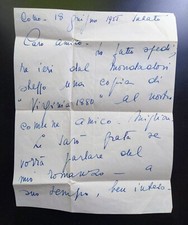 Como - 18 giugno 1955 sabato
Caro amico - ho fatto spedi
re ieri dal mondadori
stesso una copia di
"Virginia 1880" al nostro
comune amico.
Le sarò grata se
vorrà parlare del
mio romanzo - a
suo tempo, ben inteso -